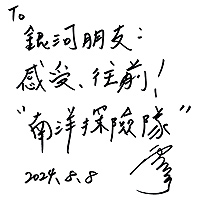 To
銀河朋友：
感受、往前！
"南洋探險隊"
2024.8.8